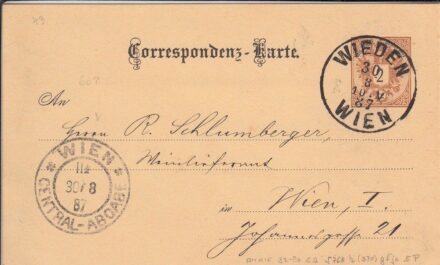 Correspondenz-Karte.
WIEDEN
30
8
87
WIEN
An
Herrn R. Schlumberger,
Weinlieferant
WIEN
30/8
87
CENTRAL-ABGABE
in Wien, I.
Johannesgasse 21